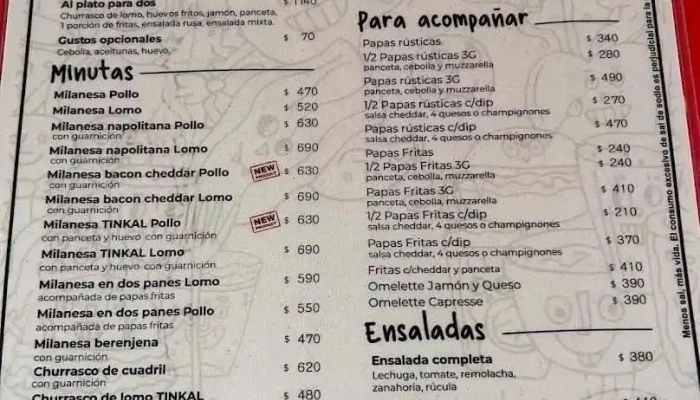 Al plato para dos $ 1140
Churrasco de lomo, huevos fritos, jamón, panceta,
1 porción de fritas, ensalada rusa, ensalada mixta.
Gustos opcionales $ 70
Cebolla, aceitunas, huevo,
Minutas
Milanesa Pollo $ 470
Milanesa Lomo $ 520
Milanesa napolitana Pollo $ 630
con guarnición
Milanesa napolitana Lomo $ 690
con guarnición
Milanesa bacon cheddar Pollo NEW PRODUCT $ 630
con guarnición
Milanesa bacon cheddar Lomo $ 690
con guarnición
Milanesa TINKAL Pollo NEW PRODUCT $ 630
con panceta y huevo con guarnición
Milanesa TINKAL Lomo $ 690
con panceta y huevo con guarnición
Milanesa en dos panes Lomo $ 590
acompañada de papas fritas
Milanesa en dos panes Pollo $ 550
acompañada de papas fritas
Milanesa berenjena $ 470
con guarnición
Churrasco de cuadril $ 620
con guarnición
Churrasco de lomo TINKAL $ 480
Para acompañar
Papas rústicas $ 340
1/2 Papas rústicas 3G $ 280
panceta, cebolla y muzzarella
Papas rústicas 3G $ 490
panceta, cebolla y muzzarella
1/2 Papas rústicas c/dip $ 270
salsa cheddar, 4 quesos o champignones
Papas rústicas c/dip $ 470
salsa cheddar, 4 quesos o champignones
Papas Fritas $ 240
1/2 Papas Fritas 3G $ 240
panceta, cebolla, muzzarella
Papas Fritas 3G $ 410
panceta, cebolla, muzzarella
1/2 Papas Fritas c/dip $ 210
salsa cheddar, 4 quesos o champignones
Papas Fritas c/dip $ 370
salsa cheddar, 4 quesos o champignones
Fritas c/cheddar y panceta $ 410
Omelette Jamón y Queso $ 390
Omelette Capresse $ 390
Ensaladas
Ensalada completa $ 380
Lechuga, tomate, remolacha,
zanahoria, rúcula
Menos sal, más vida. El consumo excesivo de sal de sodio es perjudicial para la